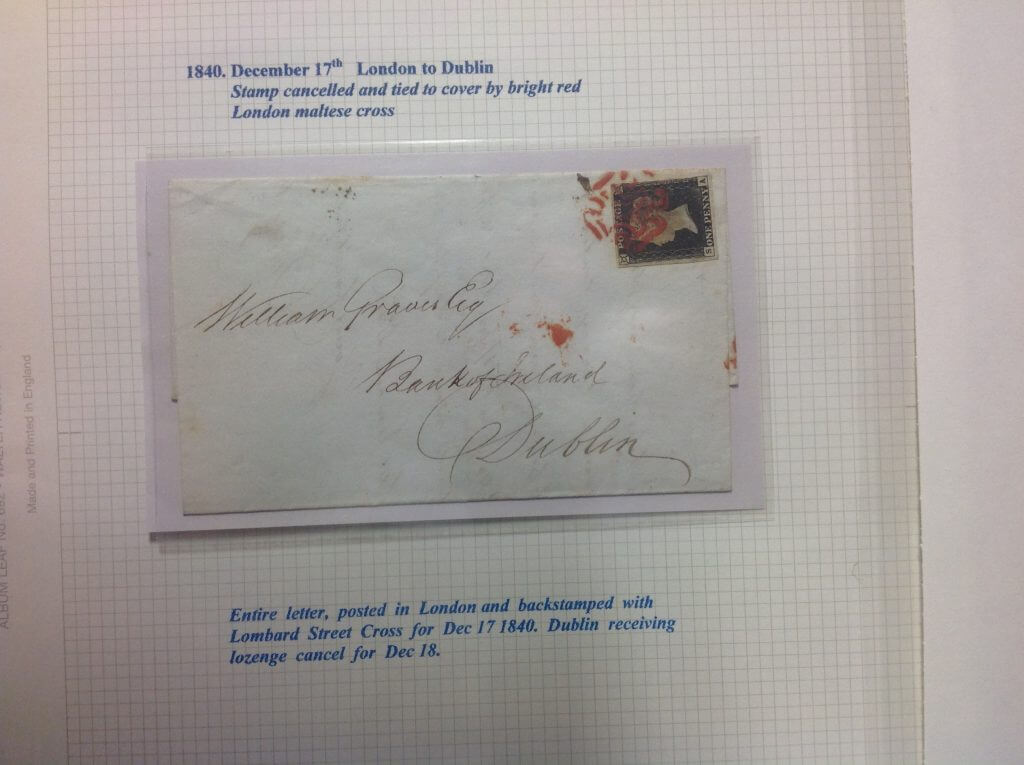 1840. December 17th London to Dublin
Stamp cancelled and tied to cover by bright red
London maltese cross
POSTAGE
ONE PENNY
S
A
William Graves Esq
Bank of Ireland
Dublin
Entire letter, posted in London and backstamped with
Lombard Street Cross for Dec 17 1840. Dublin receiving
lozenge cancel for Dec 18.
Made and Printed in England
ALBUM LEAF No.